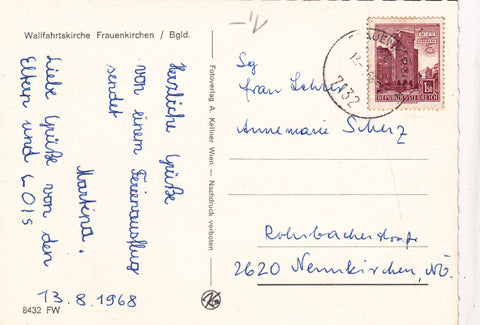 Wallfahrtskirche Frauenkirchen / Bgld.
Herzliche Grüße
von einem Ferienausflug
sendet
Martina.
Liebe Grüße von den
Eltern und Lois
13.8.1968
8432 FW
Fotoverlag A. Kellner Wien — Nachdruck verboten
7132
1.50
REPUBLIK ÖSTERREICH
Sg
Frau Lehrer
Annemarie Scherz
Rohrbacherstraße
2620 Neunkirchen, NÖ.